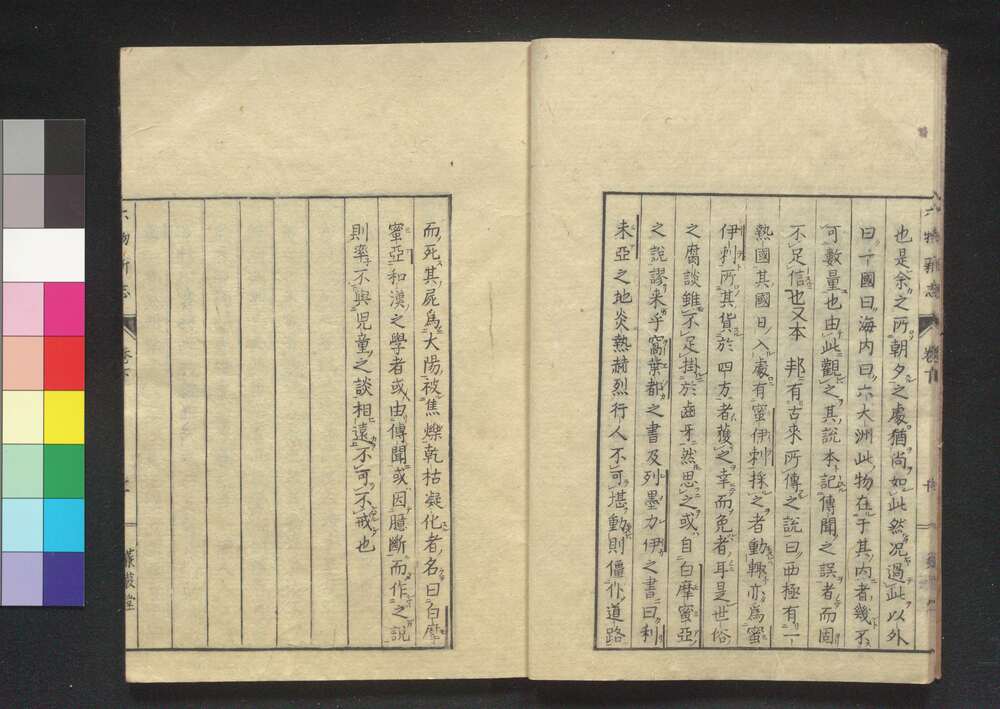 也是余之所朝夕之處猶尚如此然况過此以外
曰一國曰海内曰六大洲此物在于其内者幾不
可數量也由此觀之其説本記傳聞之誤者而固
不足信也又本 邦有古来所傳之説曰西極有一
熱國其國日入處有蜜伊剌採之者動輙亦爲蜜
伊剌所其貨於四方者獲之幸而免者耳是世俗
之腐談雖不足掛於齒牙然思之或自白摩蜜亞
之説謬来乎窩葉都之書及列墨力伊之書曰利
未亞之地炎熱赫烈行人不可堪動則僵仆道路
而死其屍爲大陽被焦爍乾枯凝化者名曰白摩
蜜亞和漢之學者或由傳聞或因臆斷而作之説
則率不與児童之談相遠不可不戒也
六物新志